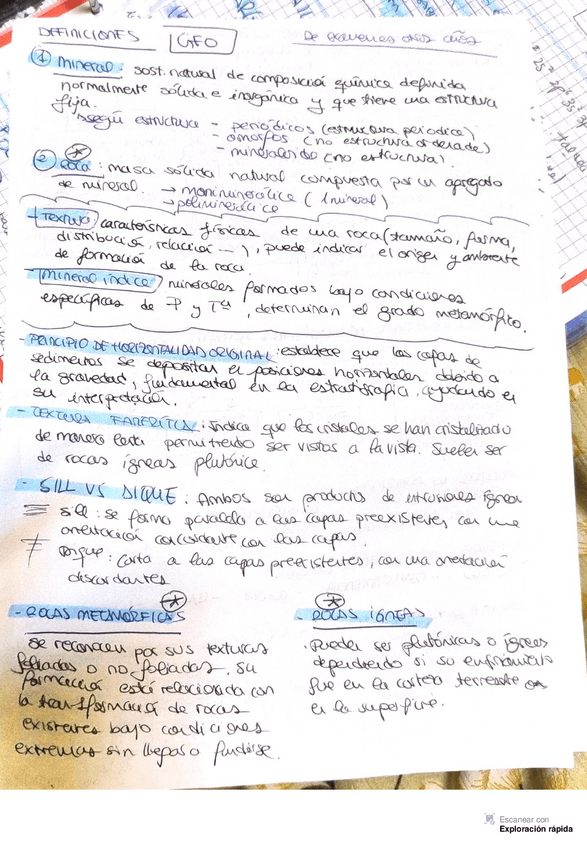 DEFINICIONES GEO De exámenes otros años
① mineral: sust. natural de composición química definida
normalmente sólida e inorgánica y que tiene una estructura
fija.
según estructura - periódicos (estructura periodica)
- amorfos (no estructura ordenada)
- mineraloide (no estructura).
② Roca: masa sólida natural compuesta por un agregado
de mineral. → monomineralice (1 mineral)
→ polimineralice
+ Textura) características físicas de una roca (tamaño, forma,
distribución, relación ---), puede indicar el origen y ambiente
de formación de la roca.
mineral índice) minerales formados bajo condiciones
específicas de P y Tª, determinan el grado metamórfico.
- PRINCIPIO DE HORIZONTALIDAD ORIGINAL: establece que las capas de
sedimentos se depositan en posiciones horizontales debido a
la gravedad, fundamental en la estratigrafía, ayudando en
su interpretación.
- TEXTURA FANERITICA: indica que los cristales se han cristalizado
de manera lenta permitiendo ser vistos a la vista. Suelen ser
de rocas ígneas plutónica.
- SILL VS DIQUE: Ambos son producto de intrusiones ígneas
sill: se forma paralelo a las capas preexistentes, con una
orientación concordante con las capas.
Dique: corta a las capas preexistentes, con una orientación
discordantes
- ROCAS METAMÓRFICAS
se reconocen por sus texturas
foliados o no foliados. Su
formación está relacionada con
la transformación de rocas
existentes bajo condiciones
extremas sin llegar a fundirse.
- ROCAS ÍGNEAS
. Pueden ser plutónicas o ígneas
dependiendo si su enfriamiento
fue en la corteza terrestre o
en la superficie.
Escanear con
Exploración rápida